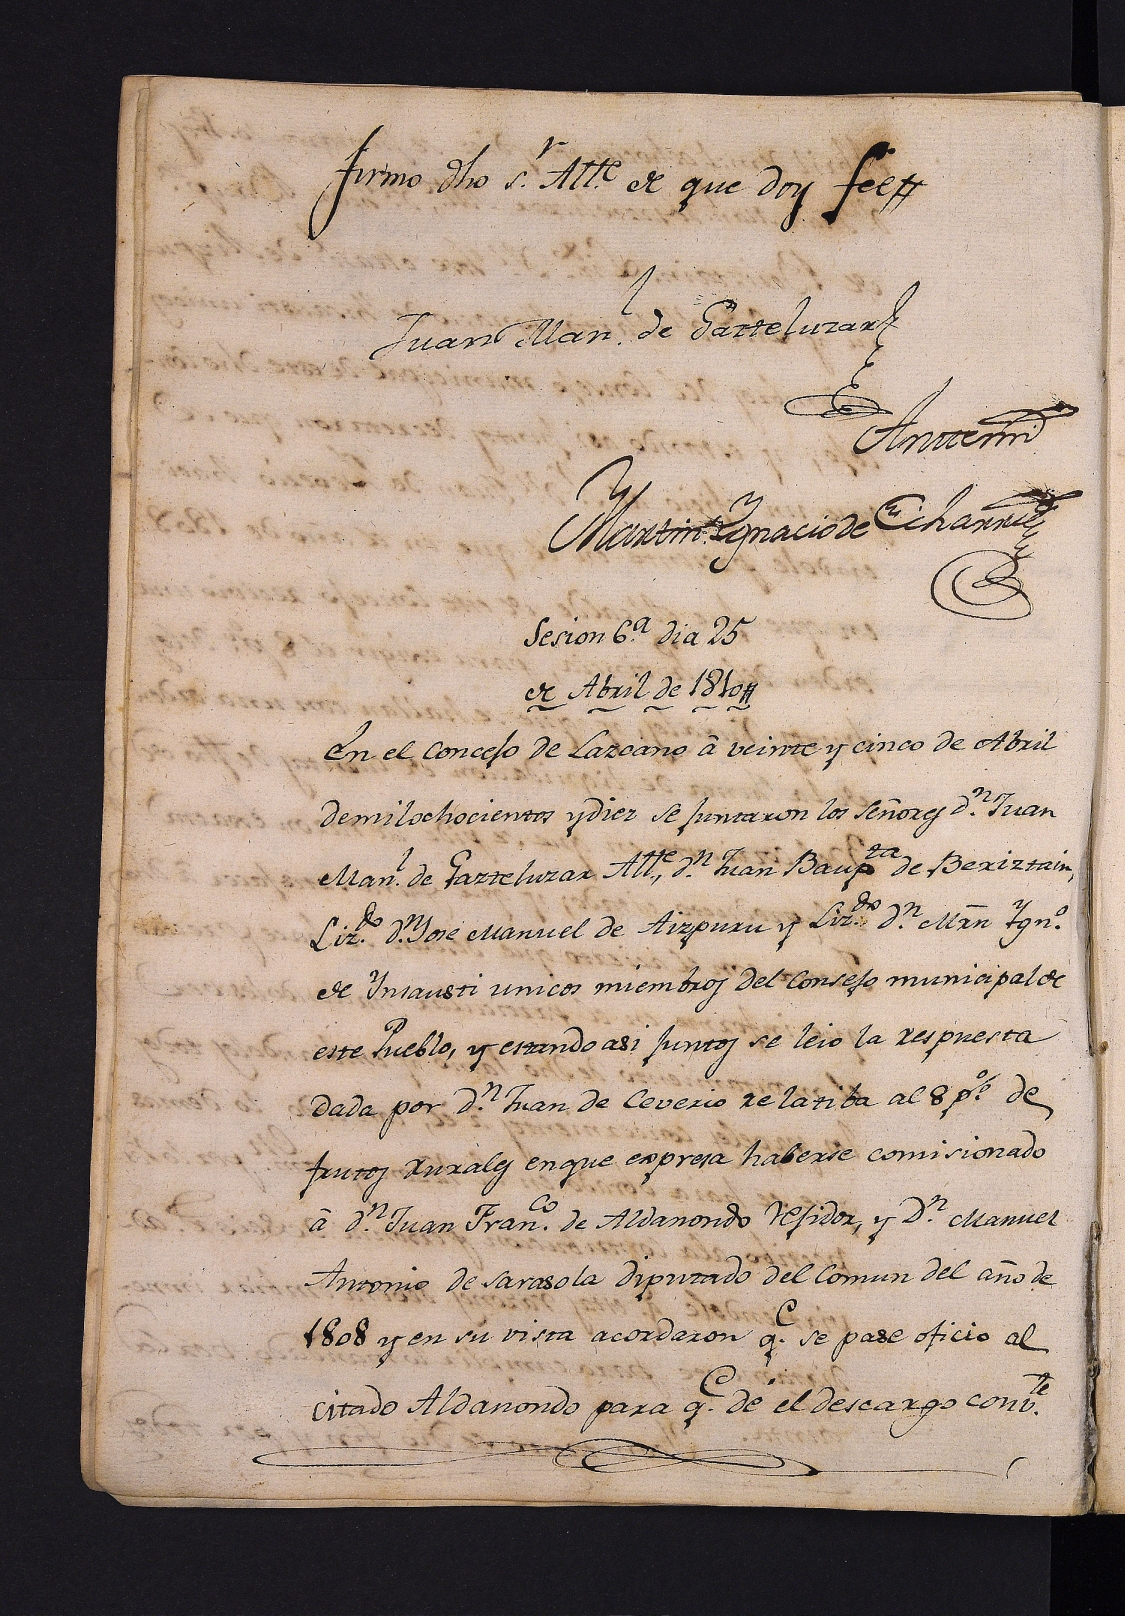 firmo dho s.r Alt.te de que doy fee
Juan Man.l de Gazteluzar
Antemi
Martin Ygnacio de Echarri
Sesion 6.a dia 25
de Abril de 1810
En el Concejo de Lazcano â veinte y cinco de Abril
de mil ochocientos y diez se juntaron los Señores d.n Juan
Man.l de Gazteluzar Alt.e, d.n Juan Baup.ta de Beriztain,
Liz.do d.n Jose Manuel de Aizpuru y Liz.do d.n Mrn Ygn.o
de Ynsausti unicos miembros del Consejo municipal de
este Pueblo, y estando asi juntos se leio la respuesta
dada por d.n Juan de Ceverio relatiba al 8 p.% de
frutos rurales en que expresa haberse comisionado
â d.n Juan Fran.co de Aldanondo rejidor, y D.n Manuel
Antonio de Sarasola diputado del comun del año de
1808 y en su vista acordaron q.e se pase oficio al
citado Aldanondo para q.e dé el descargo conb.te